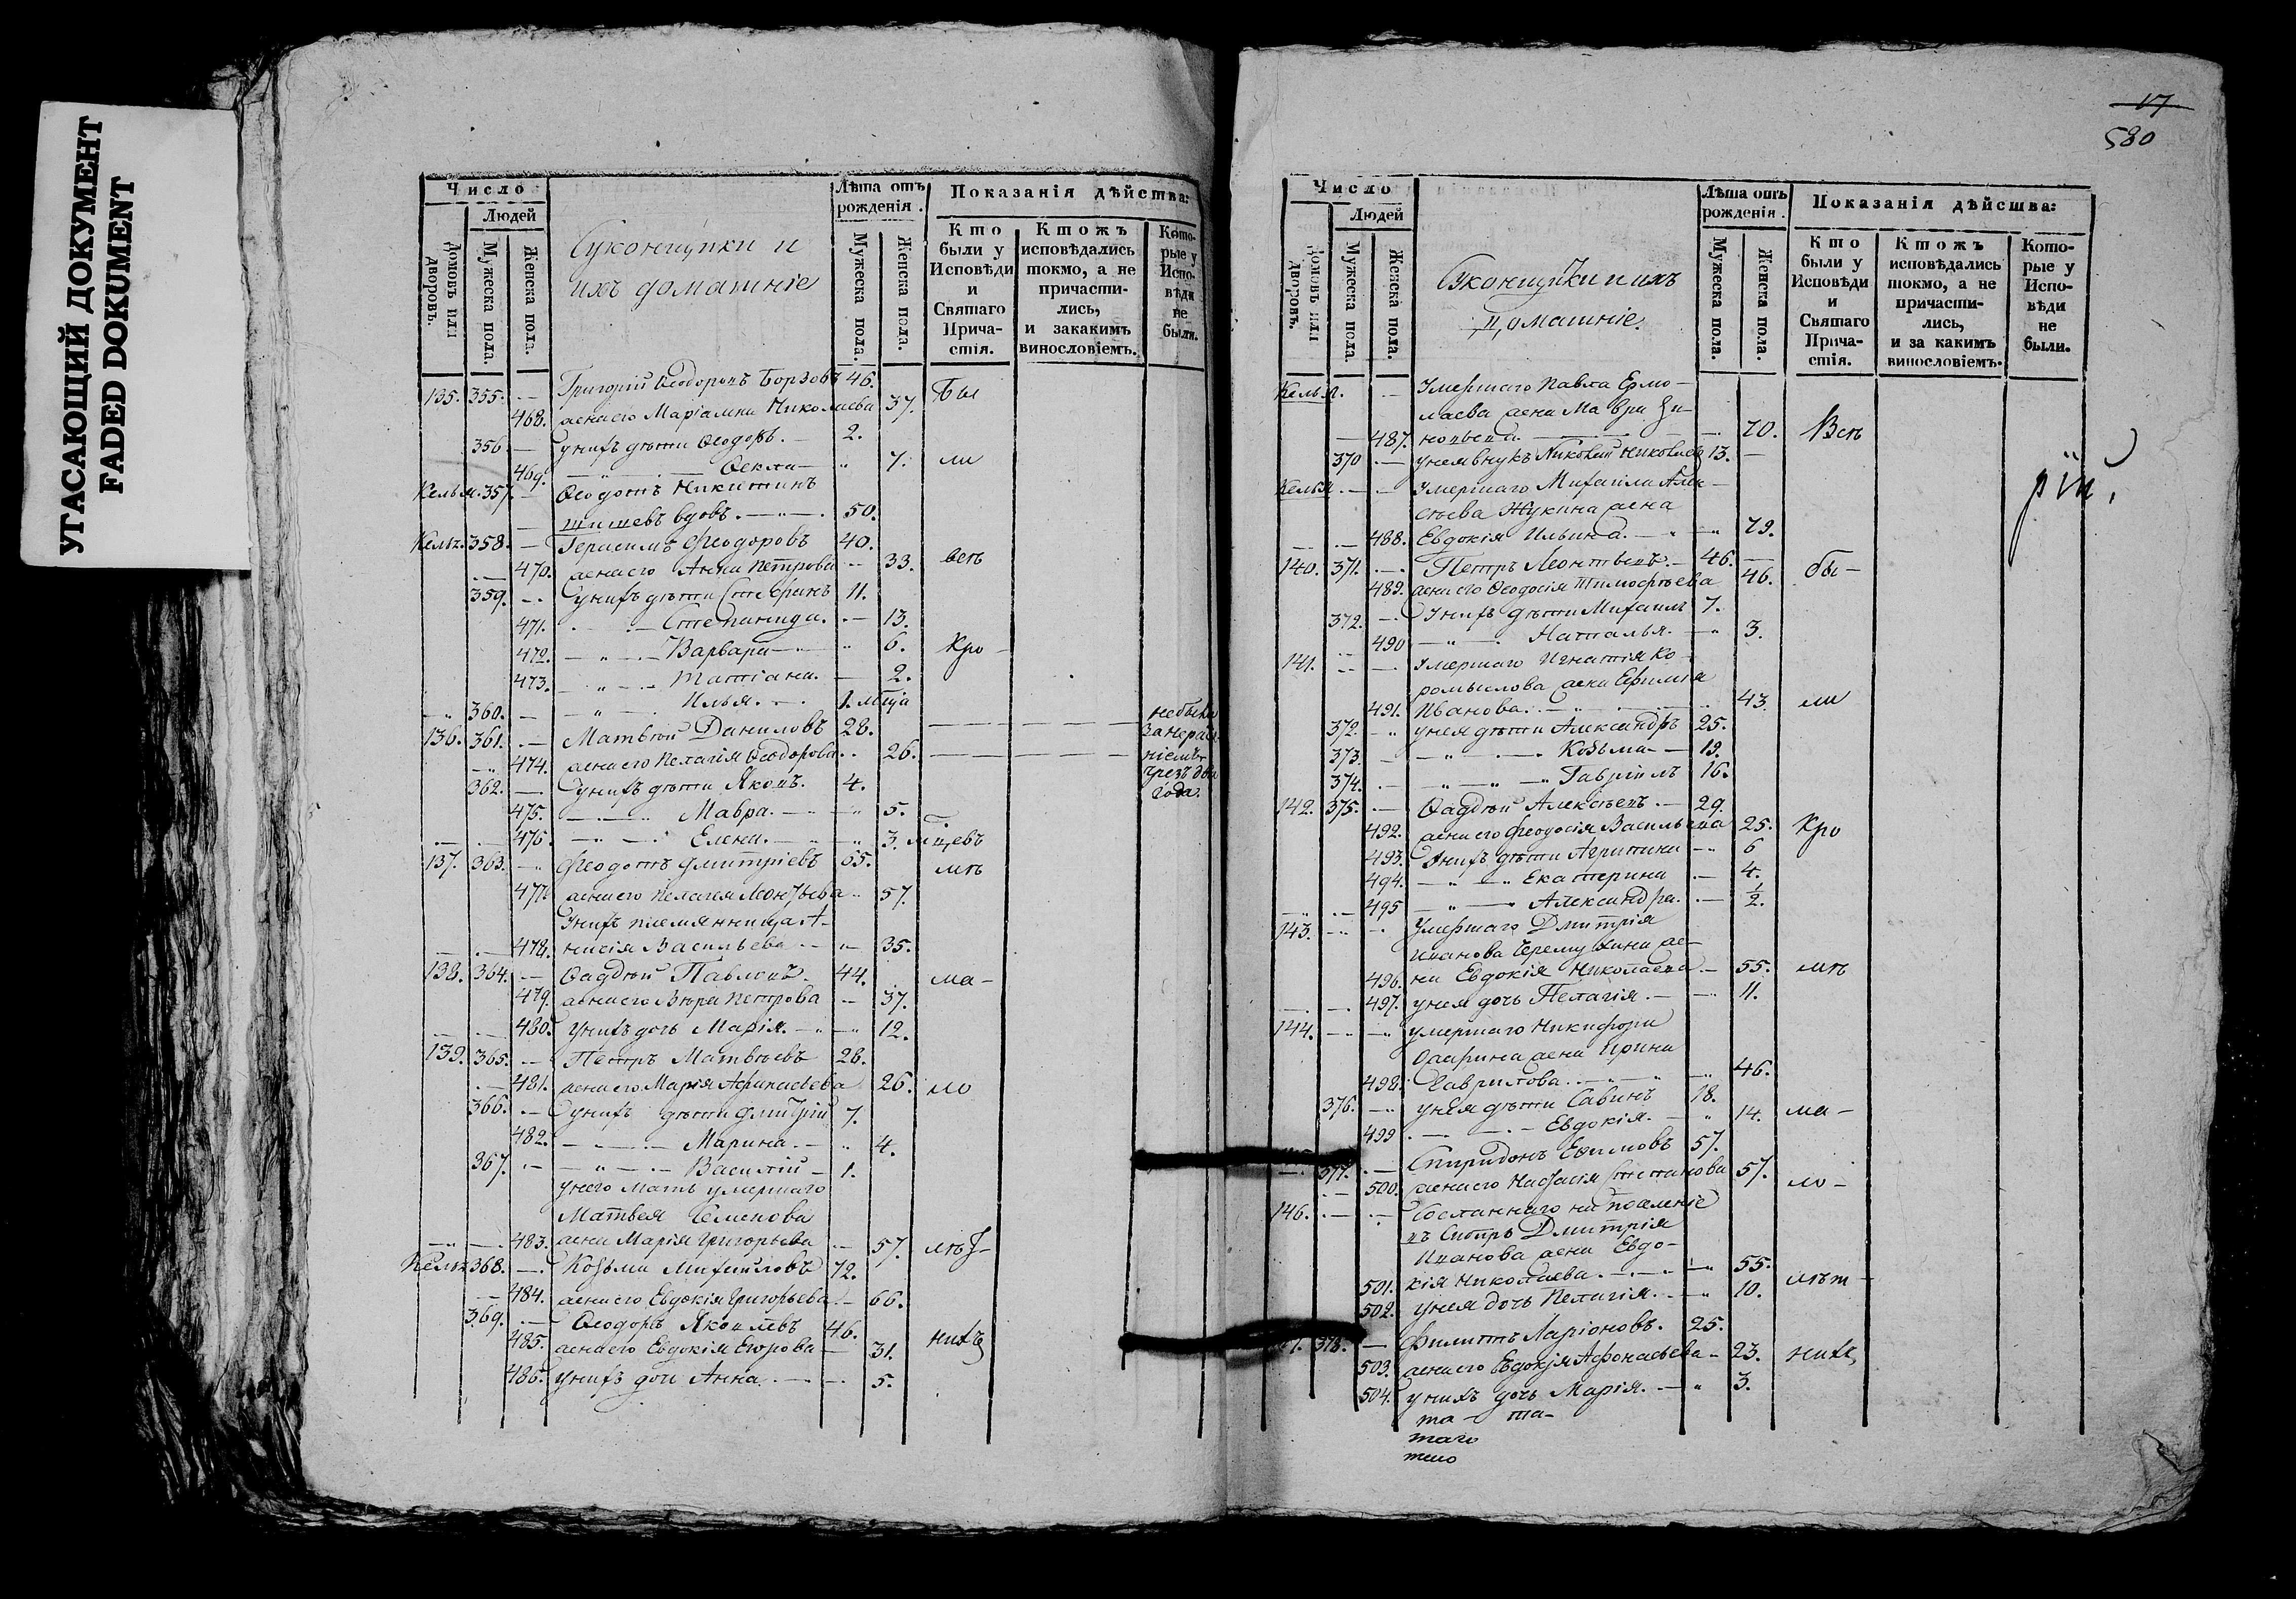 УГАСАЮЩИЙ ДОКУМЕНТ
FADED DOKUMENT
Число
Людей
Домовъ или дворовъ.
Мужеска пола.
Женска пола.
Суконщики и
ихъ домашніе
Лѣта отъ рожденія.
Мужеска пола.
Женска пола.
Показанія дѣйства:
Кто были у Исповѣди и Святаго Причастія.
Ктожъ исповѣдались токмо, а не причастились, и закакимъ винословіемъ.
Которые у Исповѣди не были.
135. 355. — Григорій Ѳеодоровъ Борзовъ 46. Бы
468. жена его Маріамна Николаева 37.
356 — у нихъ дѣти Ѳеодоръ. — 2.
469. — Ѳекла — 7. ли
Келья. 357. — Ѳеодотъ Никитинъ
вдовъ. — 50.
Келья. 358. — Герасимъ Феодоровъ 40.
470. жена его Анна Петрова — 33. всѣ
359. — у нихъ дѣти Стефанъ 11.
471. — Степанида. — 13.
472. — Варвара — 6. Кро-
473. — Татіана. — 2.
360. — Илья. — 1. мѣсца
136. 361. — Матвѣй Даниловъ 28. — не были
за нера-
474. жена его Пелагія Ѳеодорова 26. — ніемъ
чрезъ два
362. — у нихъ дѣти Яковъ. 4. года.
475. — Мавра. — 5.
476. — Елена. — 3. мѣсцевъ
137. 363. — Феодотъ Дмитріевъ 65. мѣ
477. жена его Пелагея Леонтьева 57.
У нихъ племянница А-
478. нисія Васильева — 35.
138. 364. — Ѳадѣй Павловъ. 44. ма-
479. жена его Вѣра Петрова — 37.
480. у нихъ дочь Марія. — 12.
139. 365. — Петръ Матвѣевъ 28.
481. жена его Марія Афанасьева 26. ло
366. — у нихъ дѣти Дмитрій 7.
482. — Марина. — 4.
367. — Василій — 1.
у него мать умершаго
Матвея Семенова
483. жена Марія Григорьева — 57. лѣт-
Келья 368. — Козьма Михайловъ 72.
484. жена его Евдокія Григорьева — 66.
369. — Ѳеодоръ Яковлевъ 46.
485. жена его Евдокія Егорова — 31. нихъ
486. у нихъ дочь Анна. — 5.
17
580
Число
Людей
Домовъ или дворовъ.
Мужеска пола.
Женска пола.
Суконщики и ихъ
Домашніе.
Лѣта отъ рожденія.
Мужеска пола.
Женска пола.
Показанія дѣйства:
Кто были у Исповѣди и Святаго Причастія.
Ктожъ исповѣдались токмо, а не причастились, и за какимъ винословіемъ.
Которые у Исповѣди не были.
Келья. — Умершаго Павла Ермо-
лаева жена Мавра Зи-
487. новьева. — 70. Всѣ
370 — у нея внукъ Николай Николаевъ 13. —
рій,
Келья — Умершаго Михаила Алек-
сѣева Жукина жена
488. Евдокія Ильина. — 79.
140. 371. — Петръ Леонтьевъ. — 46. —
489. жена его Ѳеодосія Тимофѣева 46. бы-
372. — У нихъ дѣти Михаилъ 7.
490 — Наталья. — 3.
141. — Умершаго Игнатія Ко-
ромыслова жена Ефимія
491. Иванова. — 43. ли
372. — у нея дѣти Александръ 25.
373. — Козьма — 19.
374. — Гавріилъ 16.
142. 375. — Ѳадѣй Алексѣевъ. — 29.
492. жена его Феодосія Васильева 25. Кро
493. У нихъ дѣти Агрипина — 6
494. — Екатерина — 4.
495 — Александра. — 1/2.
143. — Умершаго Дмитрія
Иванова Черемухина же-
496. на Евдокія Николаева — 55. мѣ
497. у нея дочь Пелагія. — 11.
144. — умершаго Никифора
жена Ирина
498. Гаврилова. — 46.
376. — у нея дѣти Савинъ 18.
499 — Евдокія. — 14. ма-
377. — Спиридонъ Ефимовъ 57.
500. жена его Настасія Степанова 57. ло-
146. — Сосланнаго на поселеніе
въ Сибирь Дмитрія
Иванова жена Евдо-
501. кія Николаева. — 55.
502. у нея дочь Пелагія. — 10. лѣт-
378. — Филиппъ Ларіоновъ. 25.
503. жена его Евдокія Афонасьева — 23. нихъ
504. у нихъ дочь Марія. — 3.
та — та-
таго